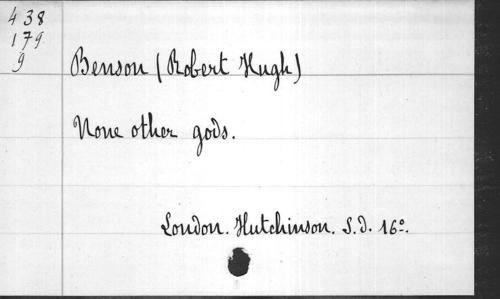 438
179
9
Benson (Robert Hugh)
None other gods.
London. Hutchinson. S.d. 16º.